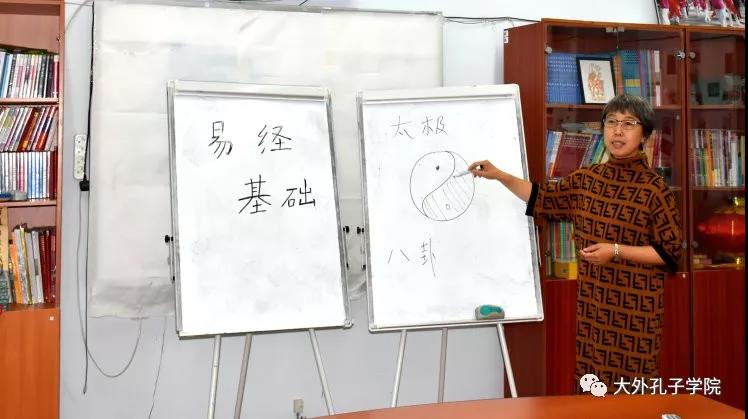 易经
基础
太极
八卦
大外孔子学院